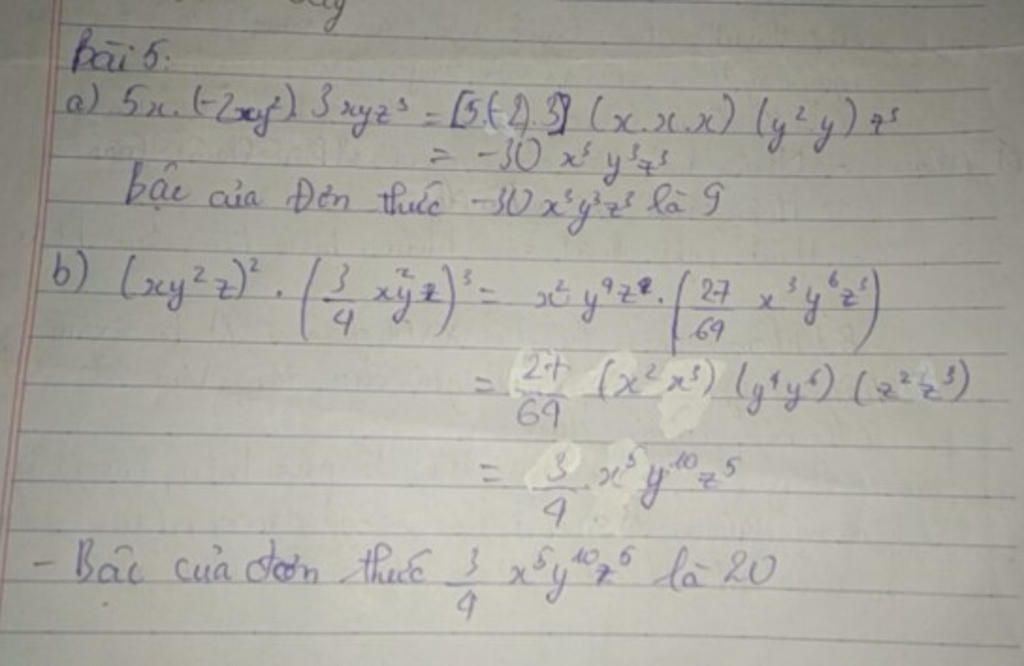 Bài 5:
a) 5x.(-2xy²).3xyz³ = [5.(-2).3] (x.x.x) (y²y) z³
= -30 x³ y³z³
Bậc của Đơn thức -30x³y³z³ là 9
b) (xy²z)² . (3/4 xy²z)³ = x² y⁴z² . (27/64 x³y⁶z³)
= 27/64 (x²x³) (y⁴y⁶) (z²z³)
= 3/4 . x⁵ y¹⁰ z⁵
- Bậc của đơn thức 3/4 x⁵y¹⁰z⁵ là 20